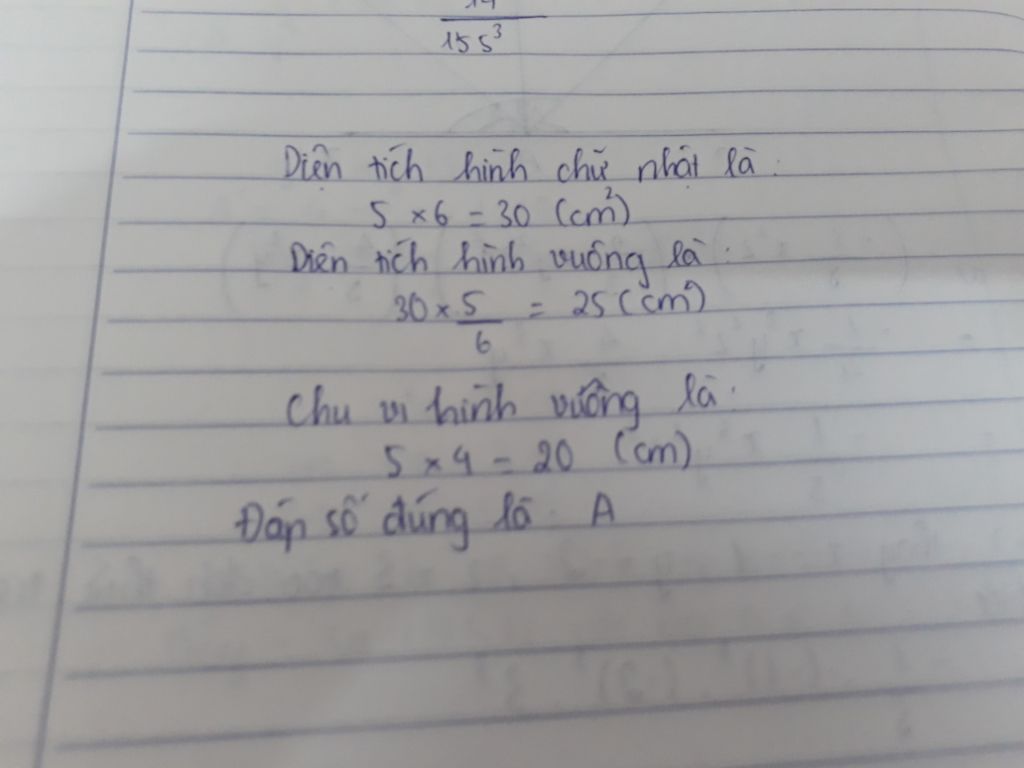 15s³
Diện tích hình chữ nhật là:
5 × 6 = 30 (cm²)
Diện tích hình vuông là:
30 × 5/6 = 25 (cm²)
Chu vi hình vuông là:
5 × 4 = 20 (cm)
Đáp số đúng là: A